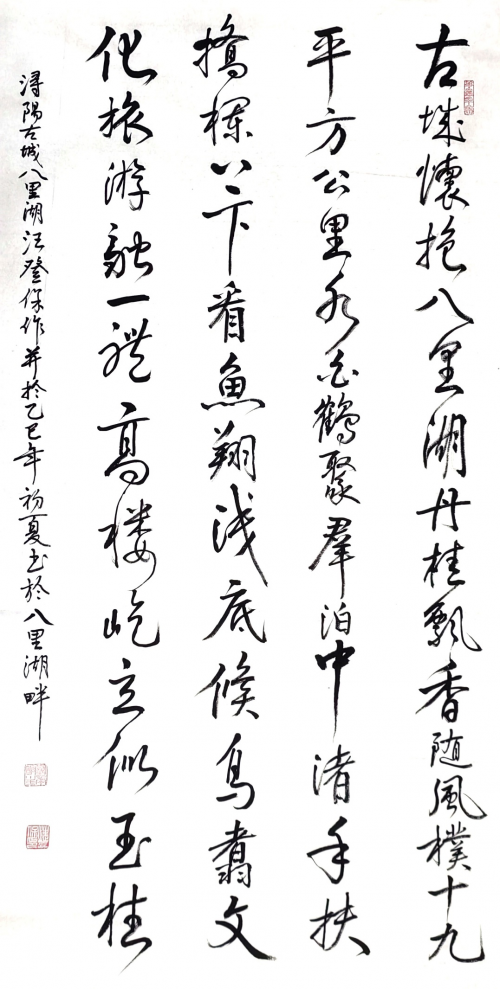 古城懷抱八里湖丹桂飘香随風樸十九
平方公里水白鶴聚羣泊中渚手扶
橋欄以下看魚翔浅底候鳥翥文
化旅游融一體高楼屹立似玉柱
浔陽古城八里湖汪登保作并於乙巳年初夏书於八里湖畔